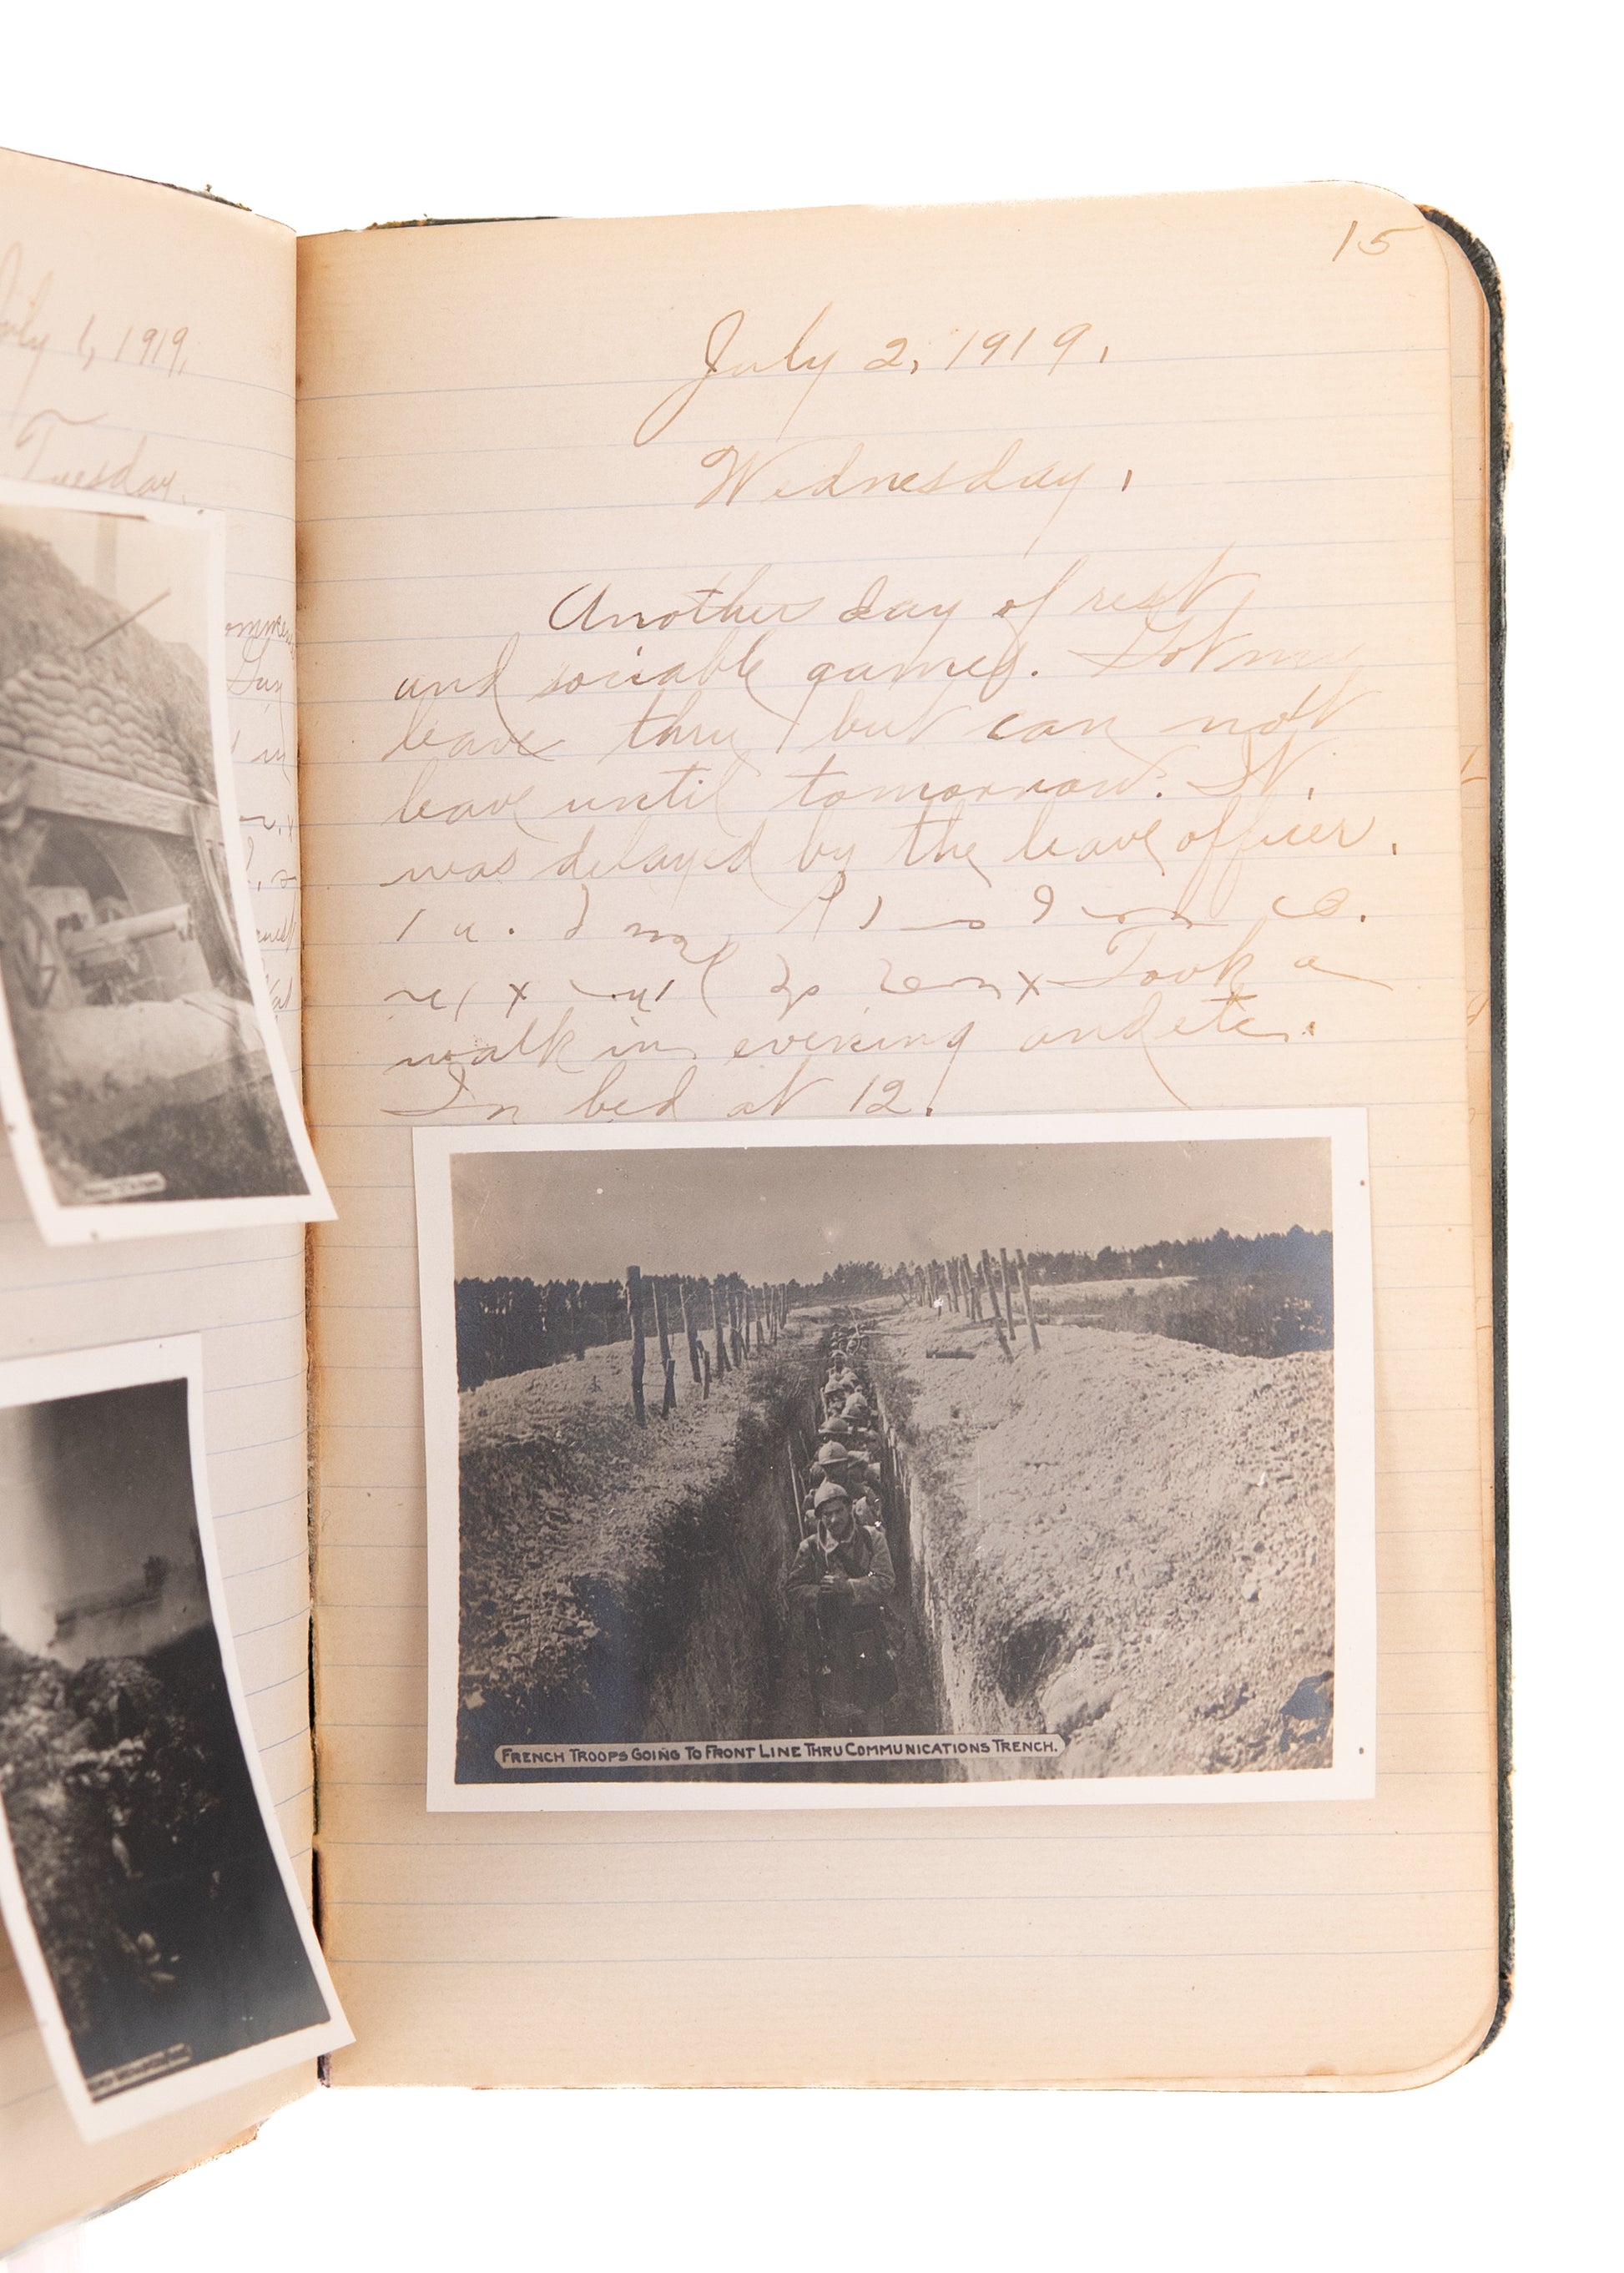 July 1, 1919.
Tuesday.
15
July 2, 1919.
Wednesday.
Another day of rest
and sociable games. Got my
leave thru but can not
leave until tomorrow. It.
was delayed by the leave officer.
Took a
walk in evening and etc.
In bed at 12.
FRENCH TROOPS GOING TO FRONT LINE THRU COMMUNICATIONS TRENCH.